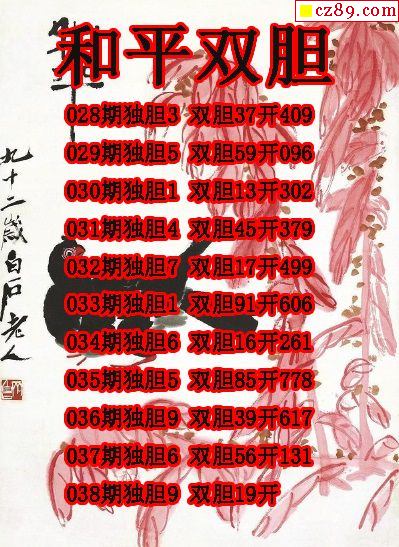 cz89.com
和平双胆
028期独胆3 双胆37开409
029期独胆5 双胆59开096
030期独胆1 双胆13开302
031期独胆4 双胆45开379
032期独胆7 双胆17开499
033期独胆1 双胆91开606
034期独胆6 双胆16开261
035期独胆5 双胆85开778
036期独胆9 双胆39开617
037期独胆6 双胆56开131
038期独胆9 双胆19开
九十二歲白石老人